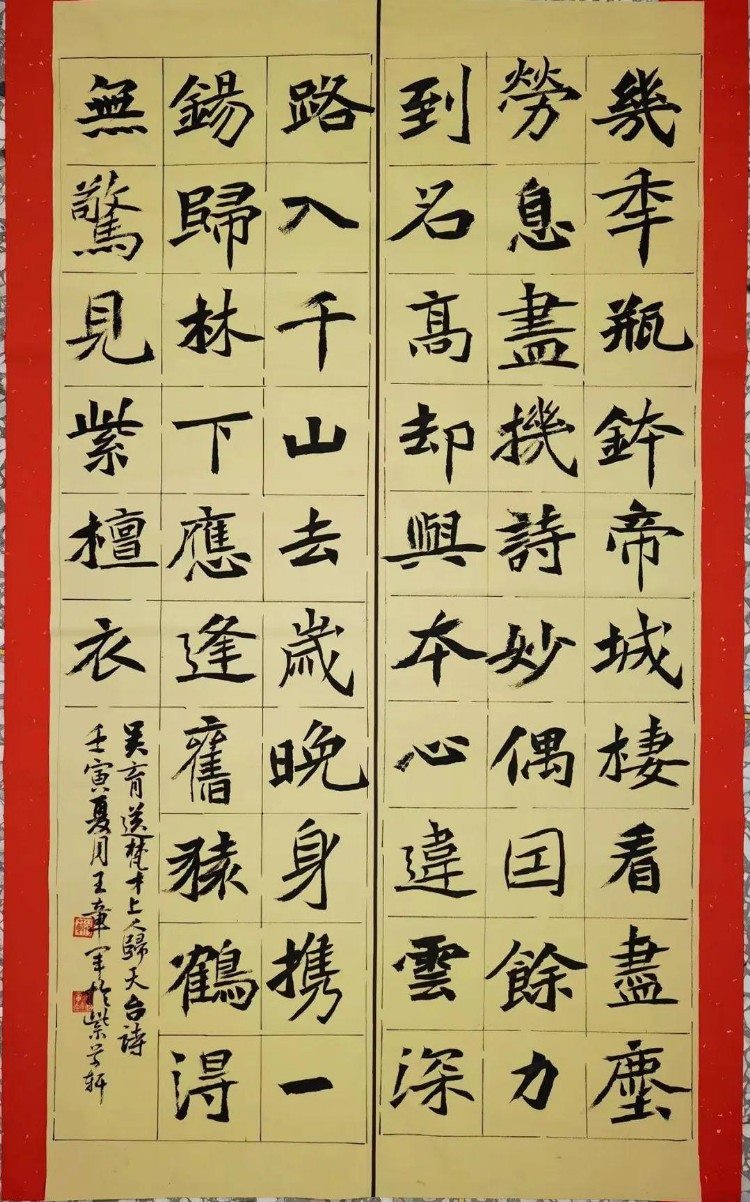 幾秊瓶鉢帝城棲看盡塵
勞息盡機詩妙偶囙餘力
到名高却與本心違雲深
路入千山去歲晚身携一
錫歸林下應逢舊猿鶴得
無驚見紫檀衣
吴育送梵才上人歸天台詩
壬寅夏月王章军於紫轩